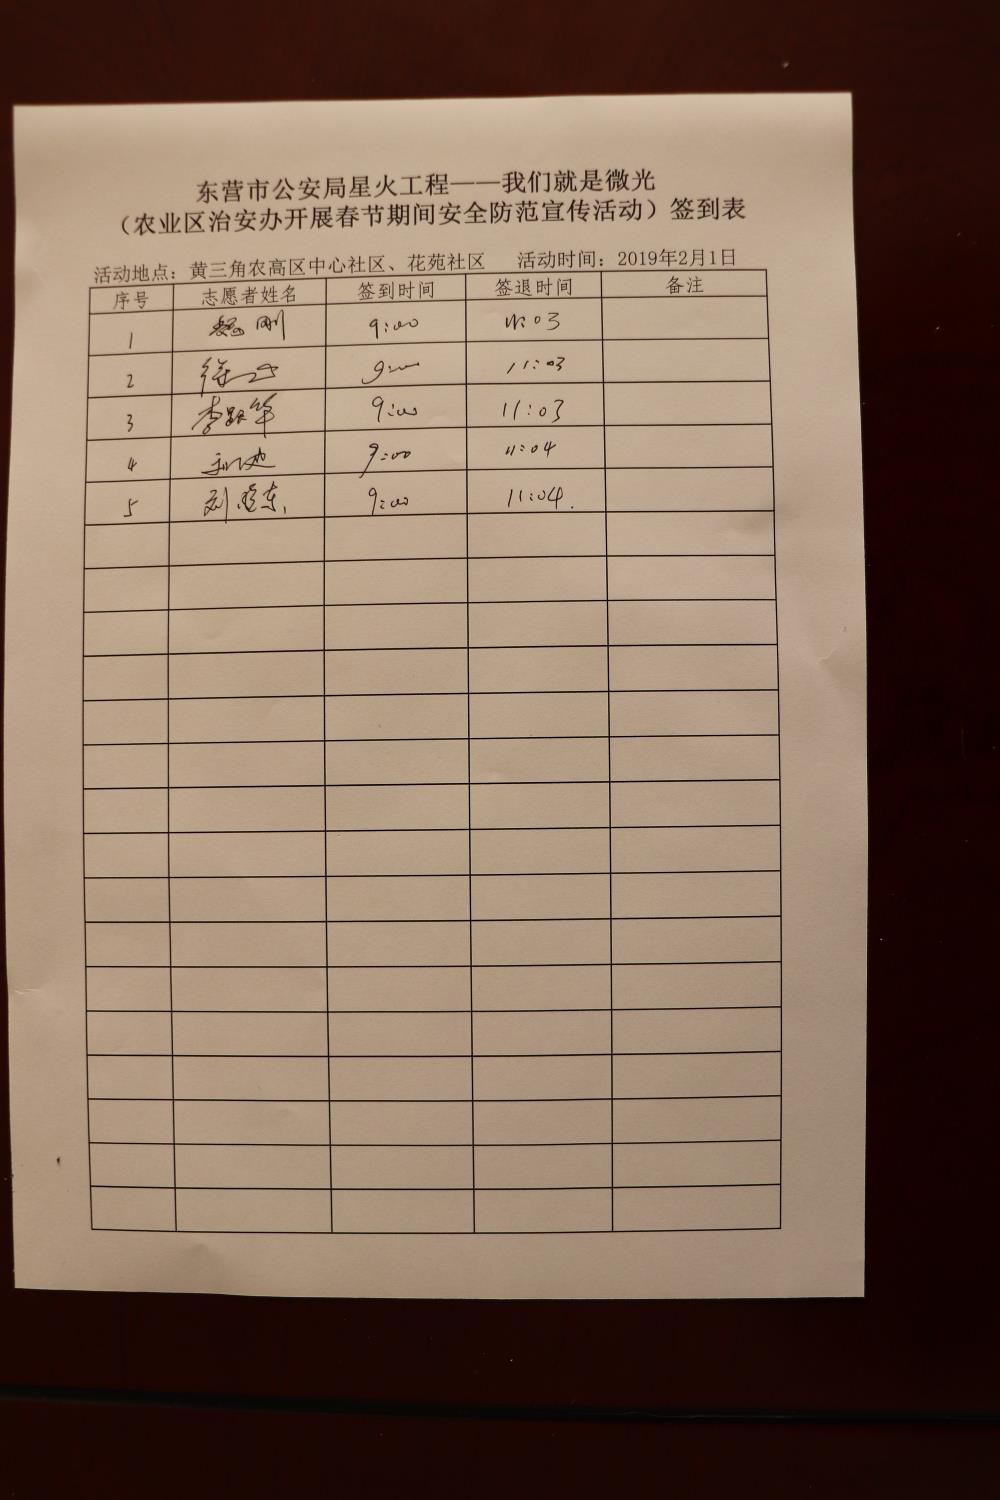 东营市公安局星火工程——我们就是微光
（农业区治安办开展春节期间安全防范宣传活动）签到表
活动地点：黄三角农高区中心社区、花苑社区 活动时间：2019年2月1日
序号 志愿者姓名 签到时间 签退时间 备注
1 刚 9:00 11:03
2 徐 9:00 11:03
3 李跃华 9:00 11:03
4 9:00 11:04
5 刘晓东 9:00 11:04